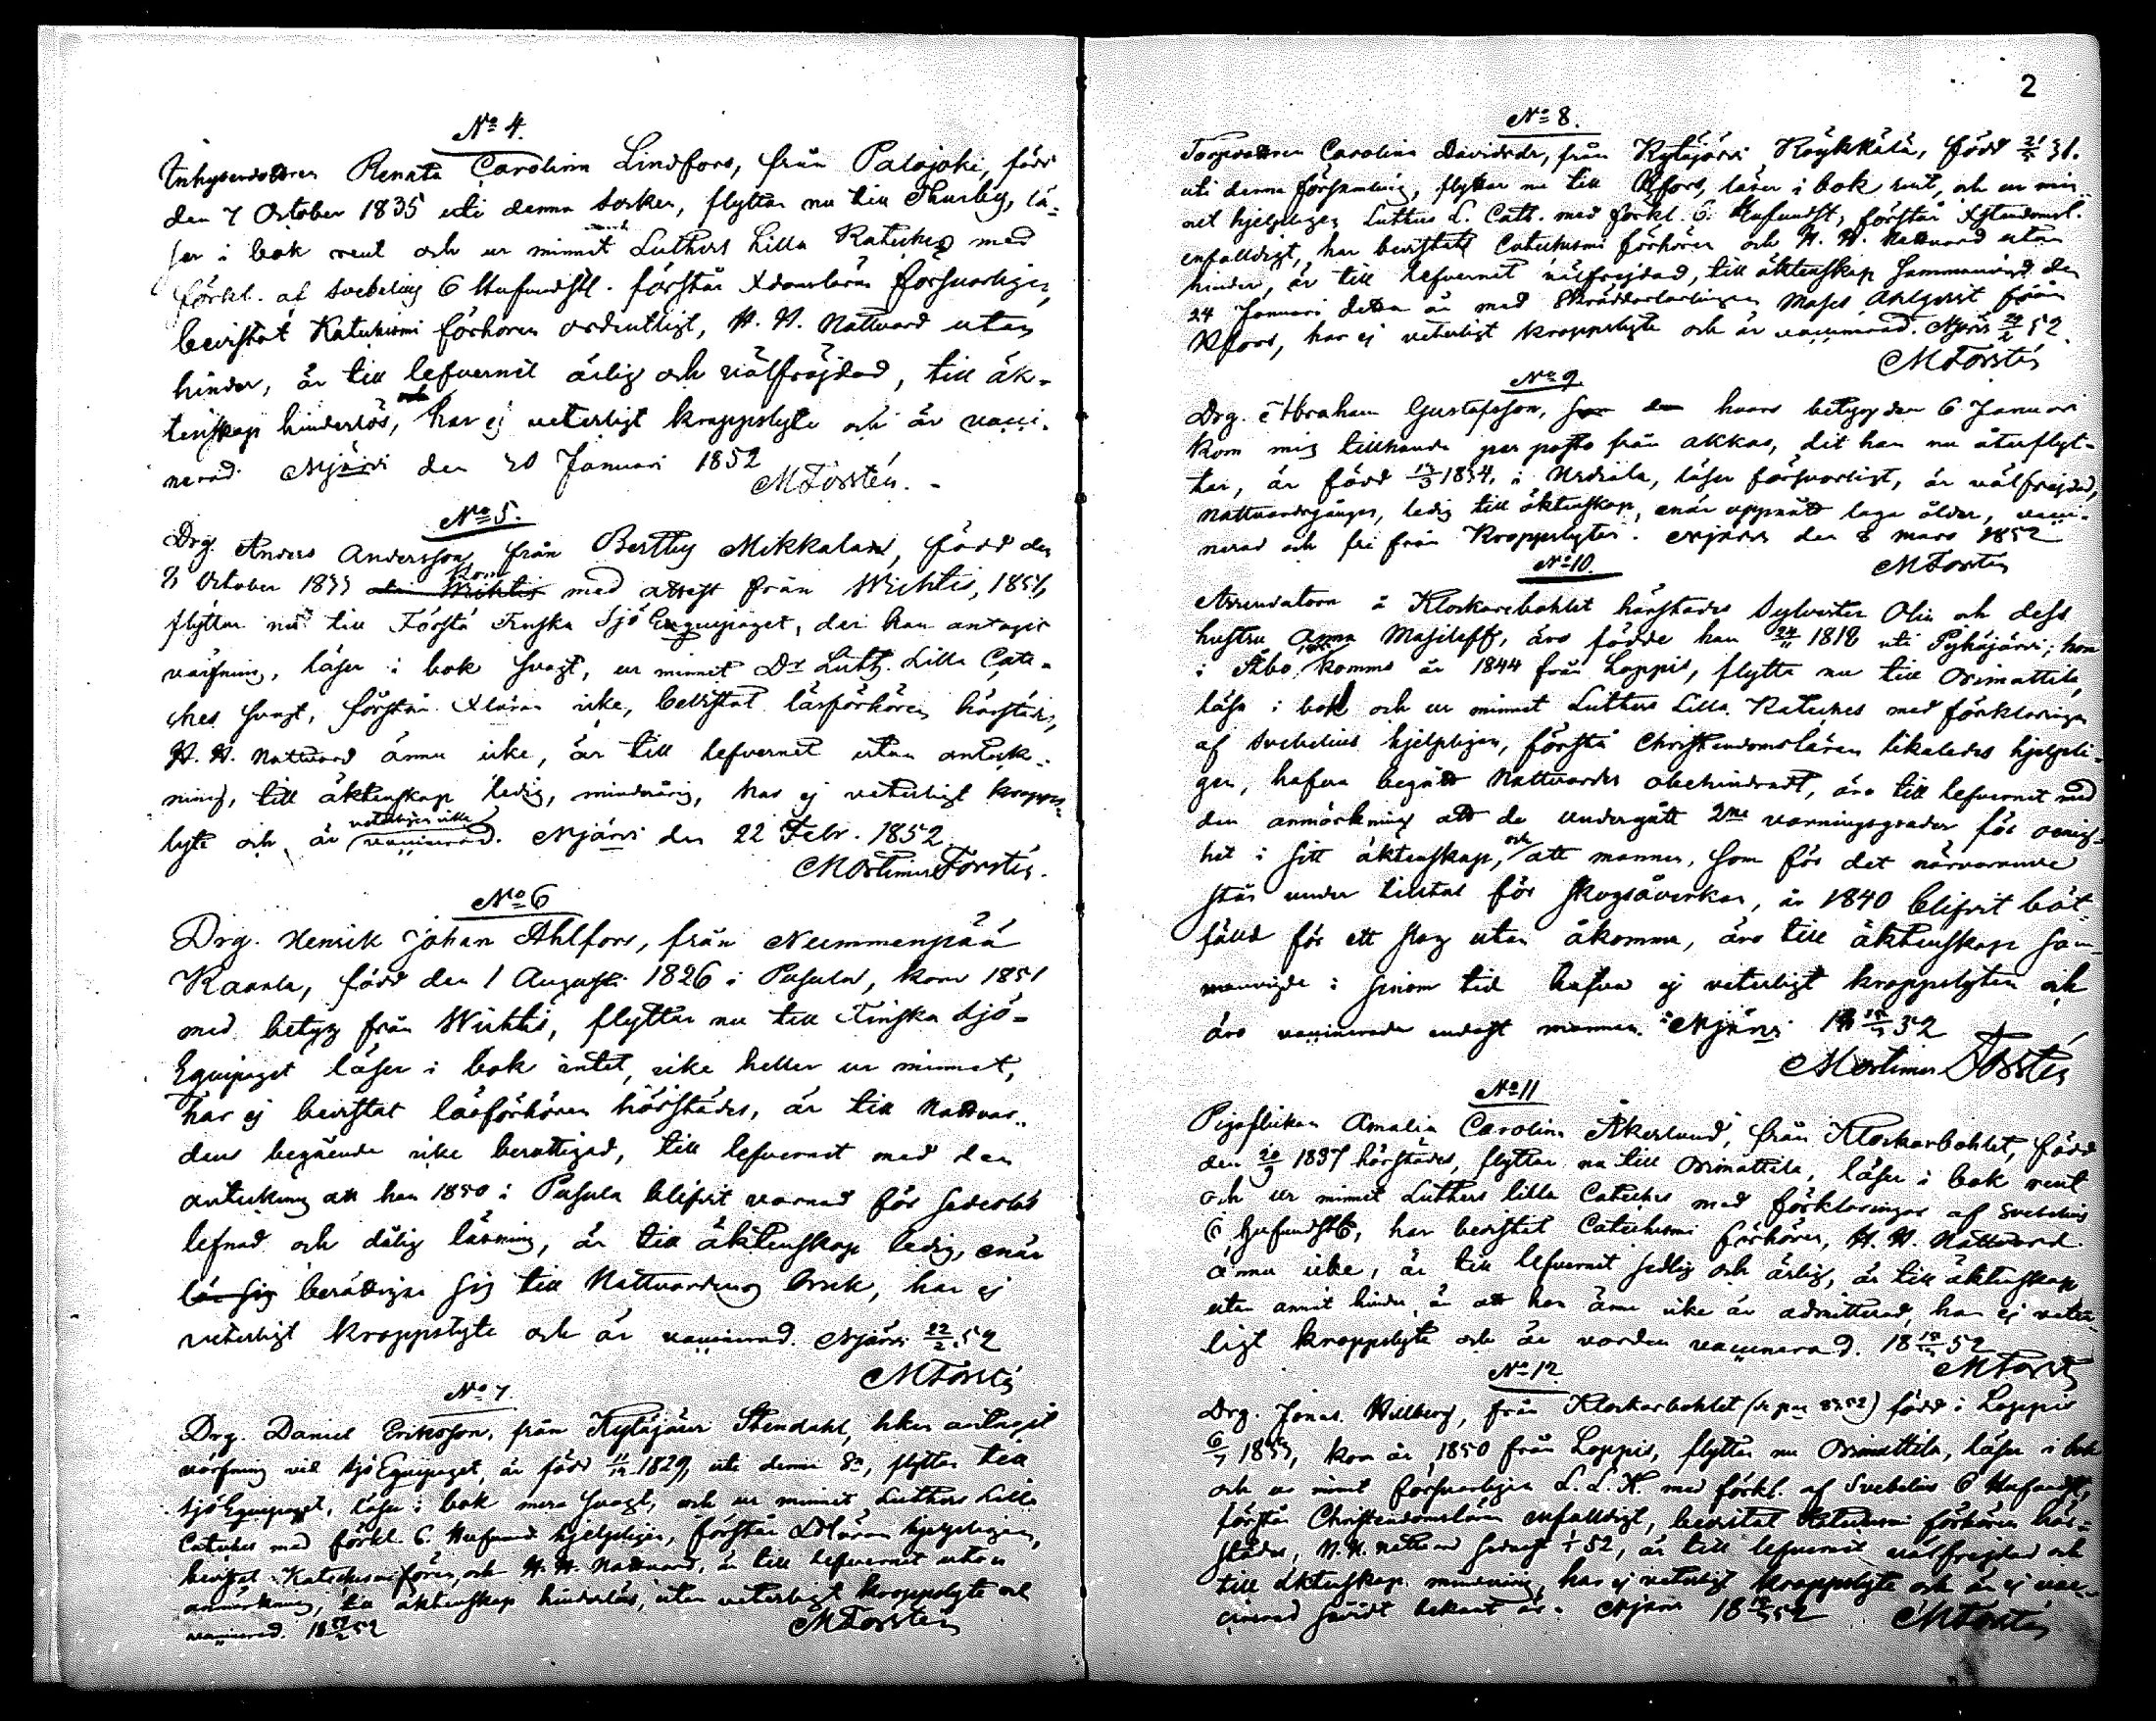 No 4.
Inhysesdottren Renata Carolina Lindfors, från Palojoki, född
den 7 October 1835 uti denna socken, flyttar nu till Thusby, lä-
ser i bok rent och ur minnet Luthers Lilla Kateches med
förkl. af Svebelius 6 Hufvudst. förstår Xdomslären försvarligen,
bevistat Katechismi förhören ordentligt, H. H. Nattvard utan
hinder, är till lefvernet ärlig och välfräjdad, till äk-
tenskap hinderlös, har ej veterligt kroppslyte och är vacci-
nerad. Njärvi den 20 Januari 1852
MForstén.
No 5.
Drg. Anders Andersson, från Bertby Mikkalas, född den
October 1833 kom med attest från Wichtis, 1851,
flyttar nu till Första Finska Sjö Equipaget, der han antagit
värfning, läser i bok svagt, ur minnet Dr Luth. Lilla Cate-
ches svagt, förstår Xläran icke, bevistat läsförhören härstädes,
H. H. Nattvard ännu icke, är till lefvernet utan anteck-
ning, till äktenskap ledig, minderårig, har ej veterligt kropps-
lyte och är veterligen icke vaccinerad. Njärvi den 22 Febr. 1852.
Mortimer Forstén.
No 6
Drg. Henrik Johan Ahlfors, från Nummenpää
Kaarla, född den 1 Augusti 1826 i Pusula, kom 1851
med betyg från Wichtis, flyttar nu till Finska Sjö-
Equipaget läser i bok intet, icke heller ur minnet,
har ej bevistat läsförhören härstädes, är till Nattvar-
dens begående icke berättigad, till lefvernet med den
anteckning att han 1850 i Pusula blifvit varnad för sedeslös
lefnad och dålig läsning, är till äktenskap ledig, enär
lär sig berättiga sig till Nattvardens bruk, har ej
veterligt kroppslyte och är vaccinerad. Njärvi 22/2 52
MForstén
No 7
Drg. Daniel Eriksson, från Kytäjärvi Stendahl, hken antagit
värfning vid Sjö Equipaget, är född 11/12 1829, uti denna Sn, flyttar till
Sjö Equipaget, läser i bok mera svagt, och ur minnet Luthers Lilla
Cateches med förkl. 6. Hufvud. hjelpligen, förstår läran hjelpligen,
bevistat Katechismiförhören, och H. H. Nattvard, är till lefvernet utan
anmärkning, till äktenskap hinderlös, utan veterligt kroppslyte och
vaccinerad. 52
MForstén
2
No 8.
Torpardottren Carolina Davidsdr, från Kytäjärvi Röykkälä, född 31.
uti denna församling, flyttar nu till Hfors, läser i bok rent, och ur min-
net hjelpligen Luthers L. Cath. med förkl. 6. Hufvudst, förstår Xstendomsl.
enfalldigt, har bevistat Catechismi förhören och H. H. Nattvard utan
hinder, är till lefvernet välfrejdad, till äktenskap sammanvigd den
24 Januari detta år med Skräddarlärlingen Moses Ahlqvist från
Hfors, har ej veterligt kroppslyte och är vaccinerad. Njärvi 52.
MForstén
No 9
Drg. Abraham Gustafsson, hvars betyg den 6 Januari
kom mig tillhanda per posto från Akkas, dit han nu återflyt-
tar, är född 1834, i Urdiala, läser försvarligt, är välfrejdad,
nattvardsgånger, ledig till äktenskap, enär uppnått laga ålder, vacci-
nerad och fri från kroppslyten. Njärvi den 8 mars 1852
MForstén
No 10.
Arrendatorn å Klockarebohlet härstädes Sylvester Olin och dess
hustru Anna Masileff, äro födde han 24/11 1818 uti Pyhäjärvi; hon
i Åbo, komna år 1844 från Loppis, flytta nu till Orimattila,
läsa i bok och ur minnet Luthers Lilla Kateches med förklaringen
af Svebelius hjelpligen, förstå Christendomsläran likaledes hjelpli-
gen, hafva begått Nattvarden obehindradt, äro till lefvernet med
den anmärkning att de undergått 2ne varningsgrader för oenig-
het i sitt äktenskap, och att mannen, som för det närvarande
står under tilltal för skogsåverkan, år 1840 blifvit böt-
fälld för ett slag utan åkomma, äro till äktenskap sam-
manvigde i sinom tid hafva ej veterligt kroppslyten och
äro vaccinerade endast mannen. Njärvi 52
Mortimer Forstén
No 11
Pigoflickan Amalia Carolina Åkerlund, från Klockarbohlet, född
den 20/9 1837 härstädes, flyttar nu till Orimattila, läser i bok rent
och ur minnet Luthers lilla Cateches med förklaringar af Svebelius
6 Hufvudst, har bevistat Catechismi förhören, H. H. Nattvard
ännu icke, är till lefvernet sedlig och ärlig, är till äktenskap
utan annat hinder, än att hon ännu icke är admitterad, har ej veter-
ligt kroppslyte och är vorden vaccinerad. 18 52
MForstén
No 12
Drg. Jonas Willberg, från Klockarbohlet född i Loppis
1833, kom år 1850 från Loppis, flyttar nu Orimattila, läser i bok
och ur minnet försvarligen L. L. K. med förkl. af Svebelius 6 Hufvudst,
förstår Christendomsläran enfalldigt, bevistat Katechismi förhören här-
städes, H. H. Nattvard sednast 52, är till lefvernet välfrejdad och
till äktenskap minderårig, har ej veterligt kroppslyte och är ej vac-
cinerad såvidt bekant är. Njärvi 18 52
MForstén